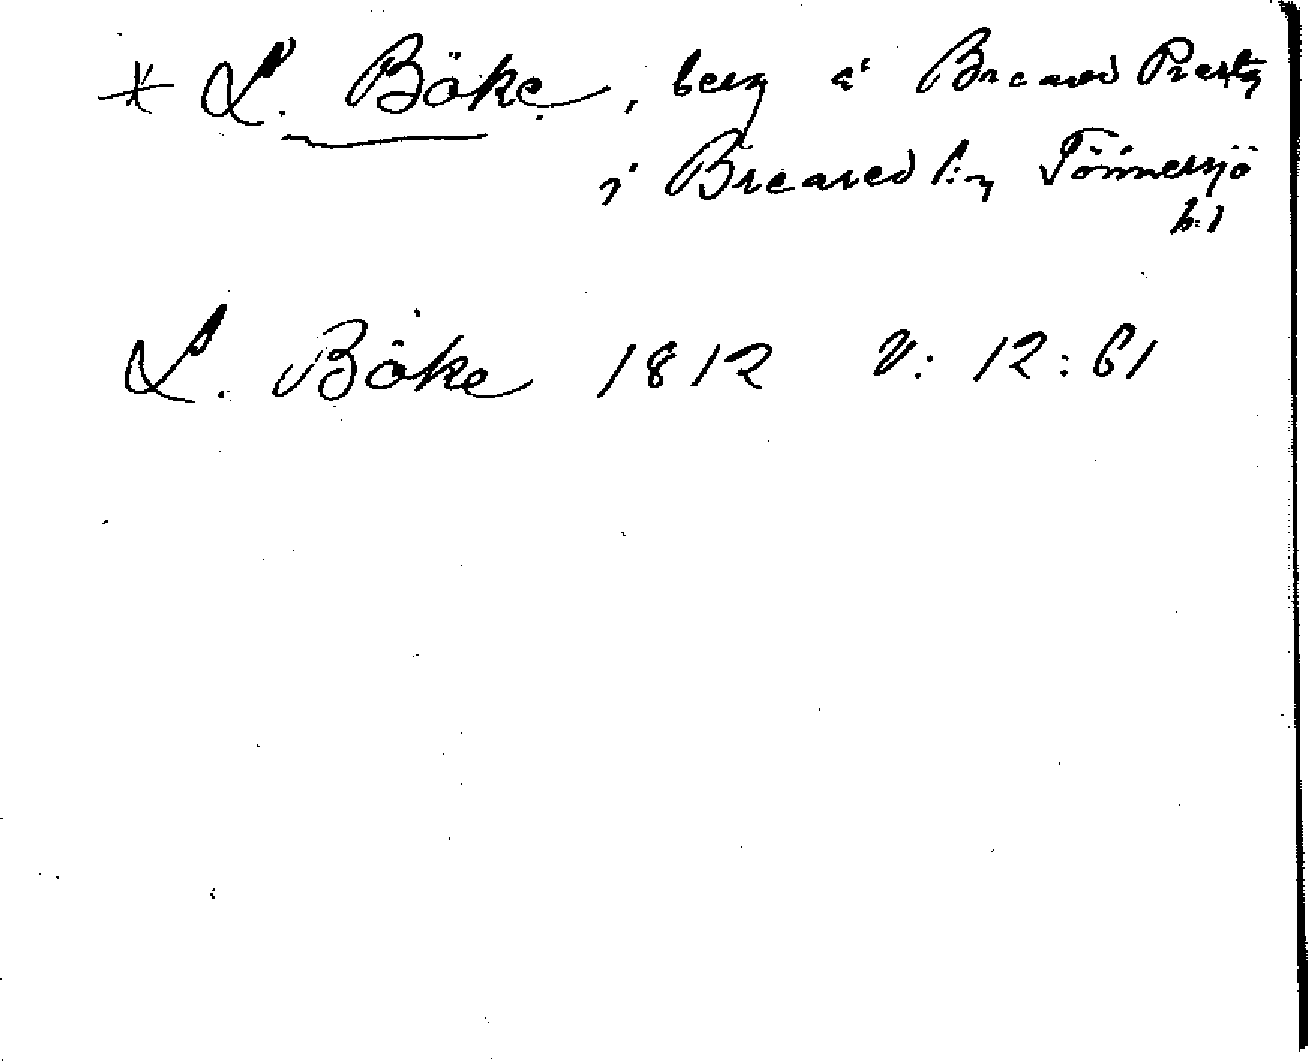 * L. Böke, berg å Breared Prestg
i Breared s:n Tönnersjö
h:d
L. Böke 1812 V: 12:61